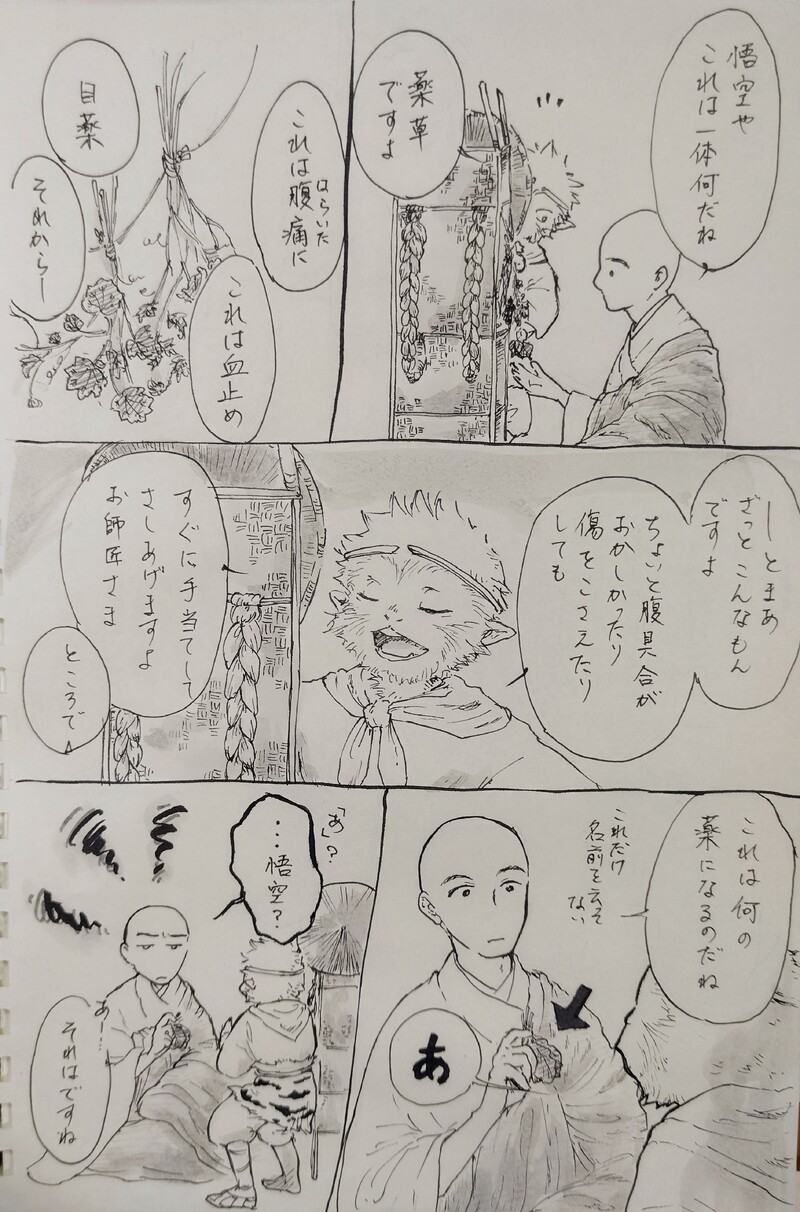 悟空や
これは一体何だね
薬草
ですよ
これは腹痛に
はらいた
これは血止め
目薬
それからー
ーとまあ
ざっとこんなもん
ですよ
ちょいと腹具合が
おかしかったり
傷をこさえたり
しても
すぐに手当てして
さしあげますよ
お師匠さま
ところで
これは何の
薬になるのだね
これだけ
名前を云って
ない
あ
「あ」？
…悟空？
あー…
それはですね